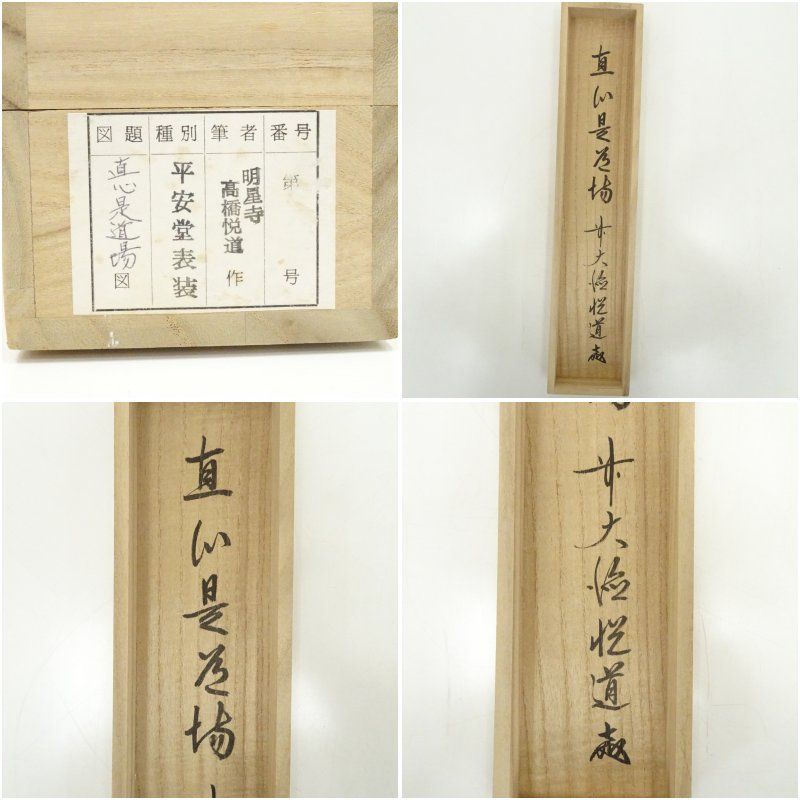 図題 種別 筆者 番号
直心是道場図
平安堂表装
明星寺
高橋悦道 作
第 号
直心是道場
大 悦道
直心是道場
大 悦道